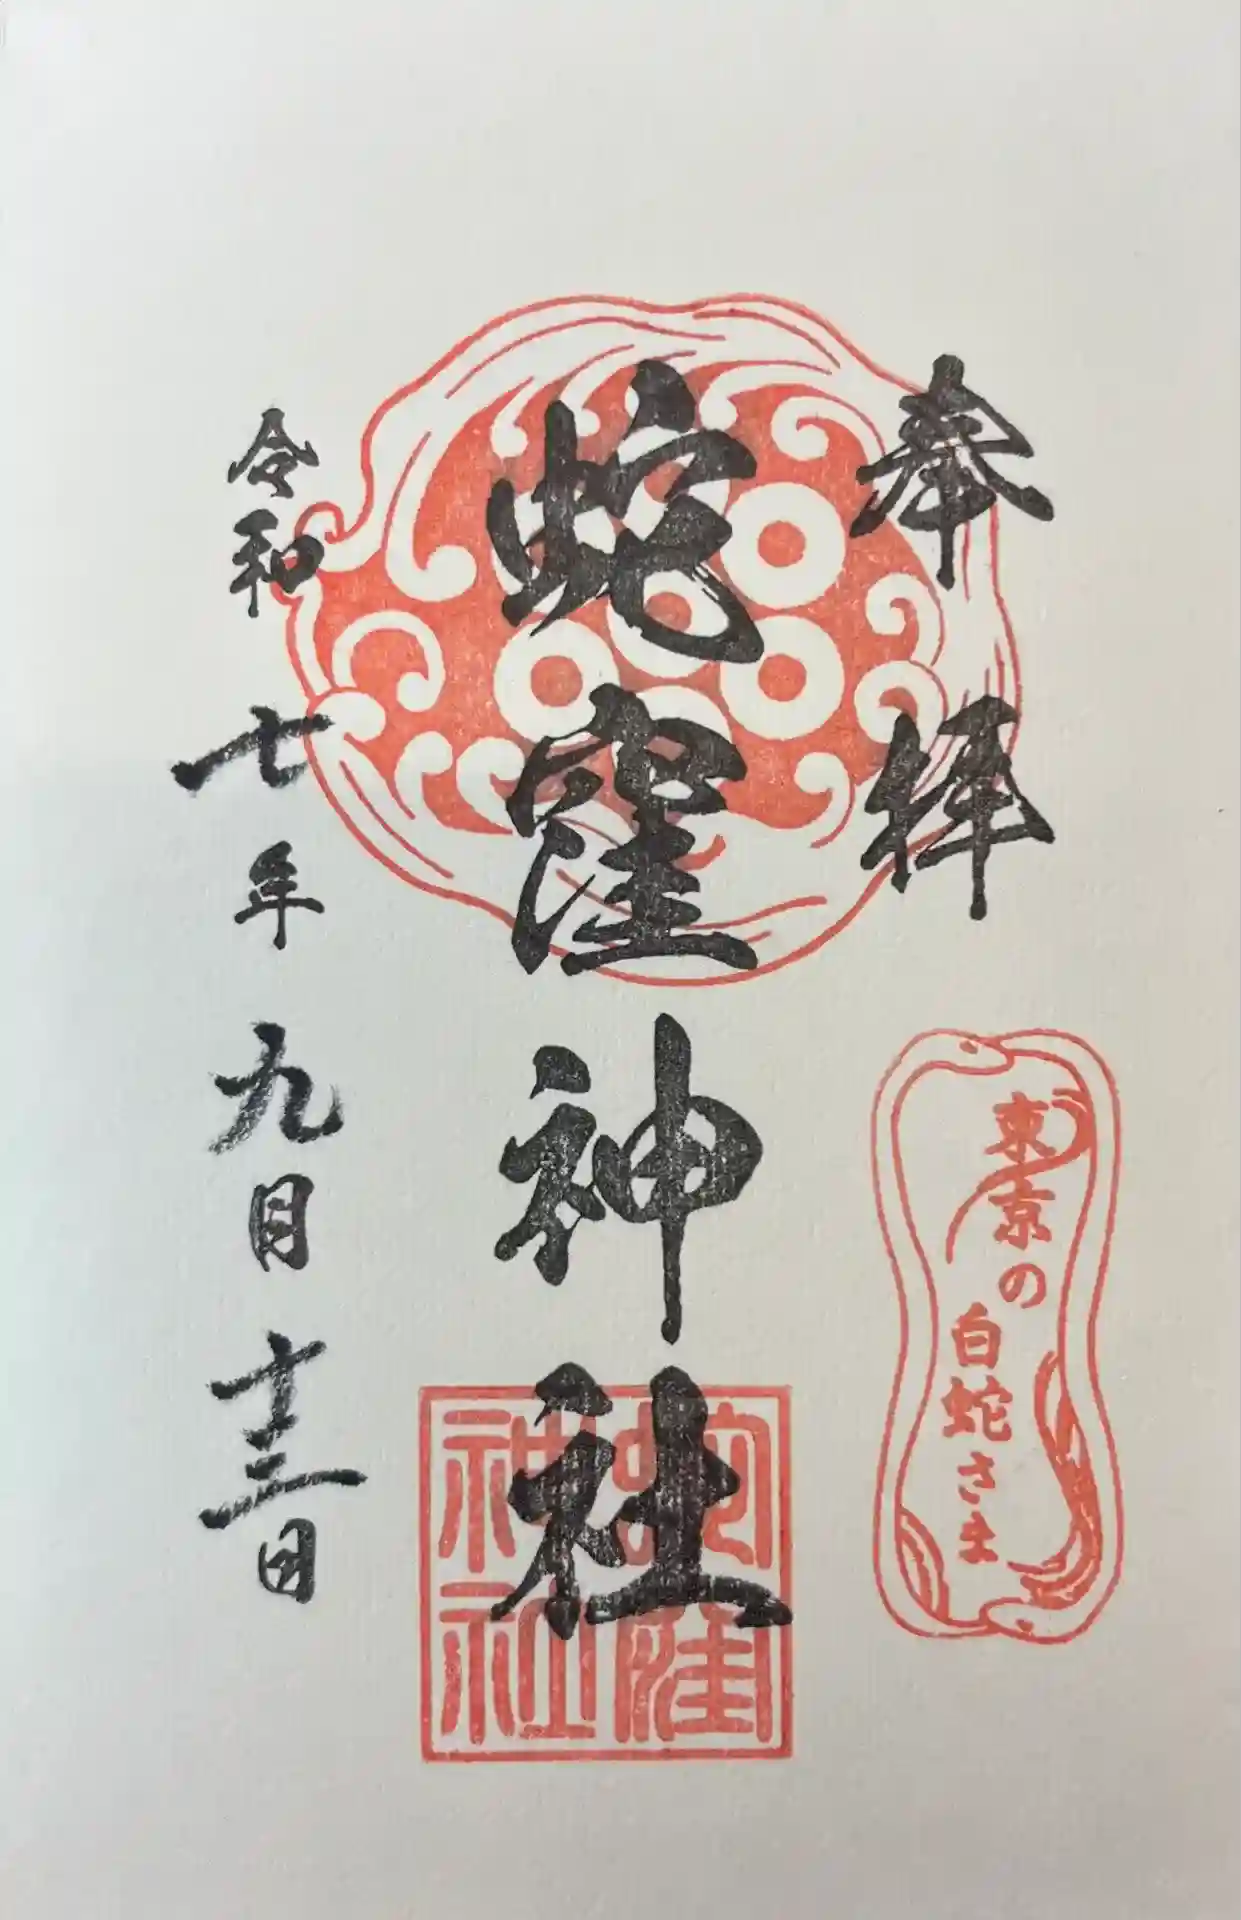 奉拝
東京の
白蛇さま
蛇窪神社
蛇窪
神社
令和七年九月十三日